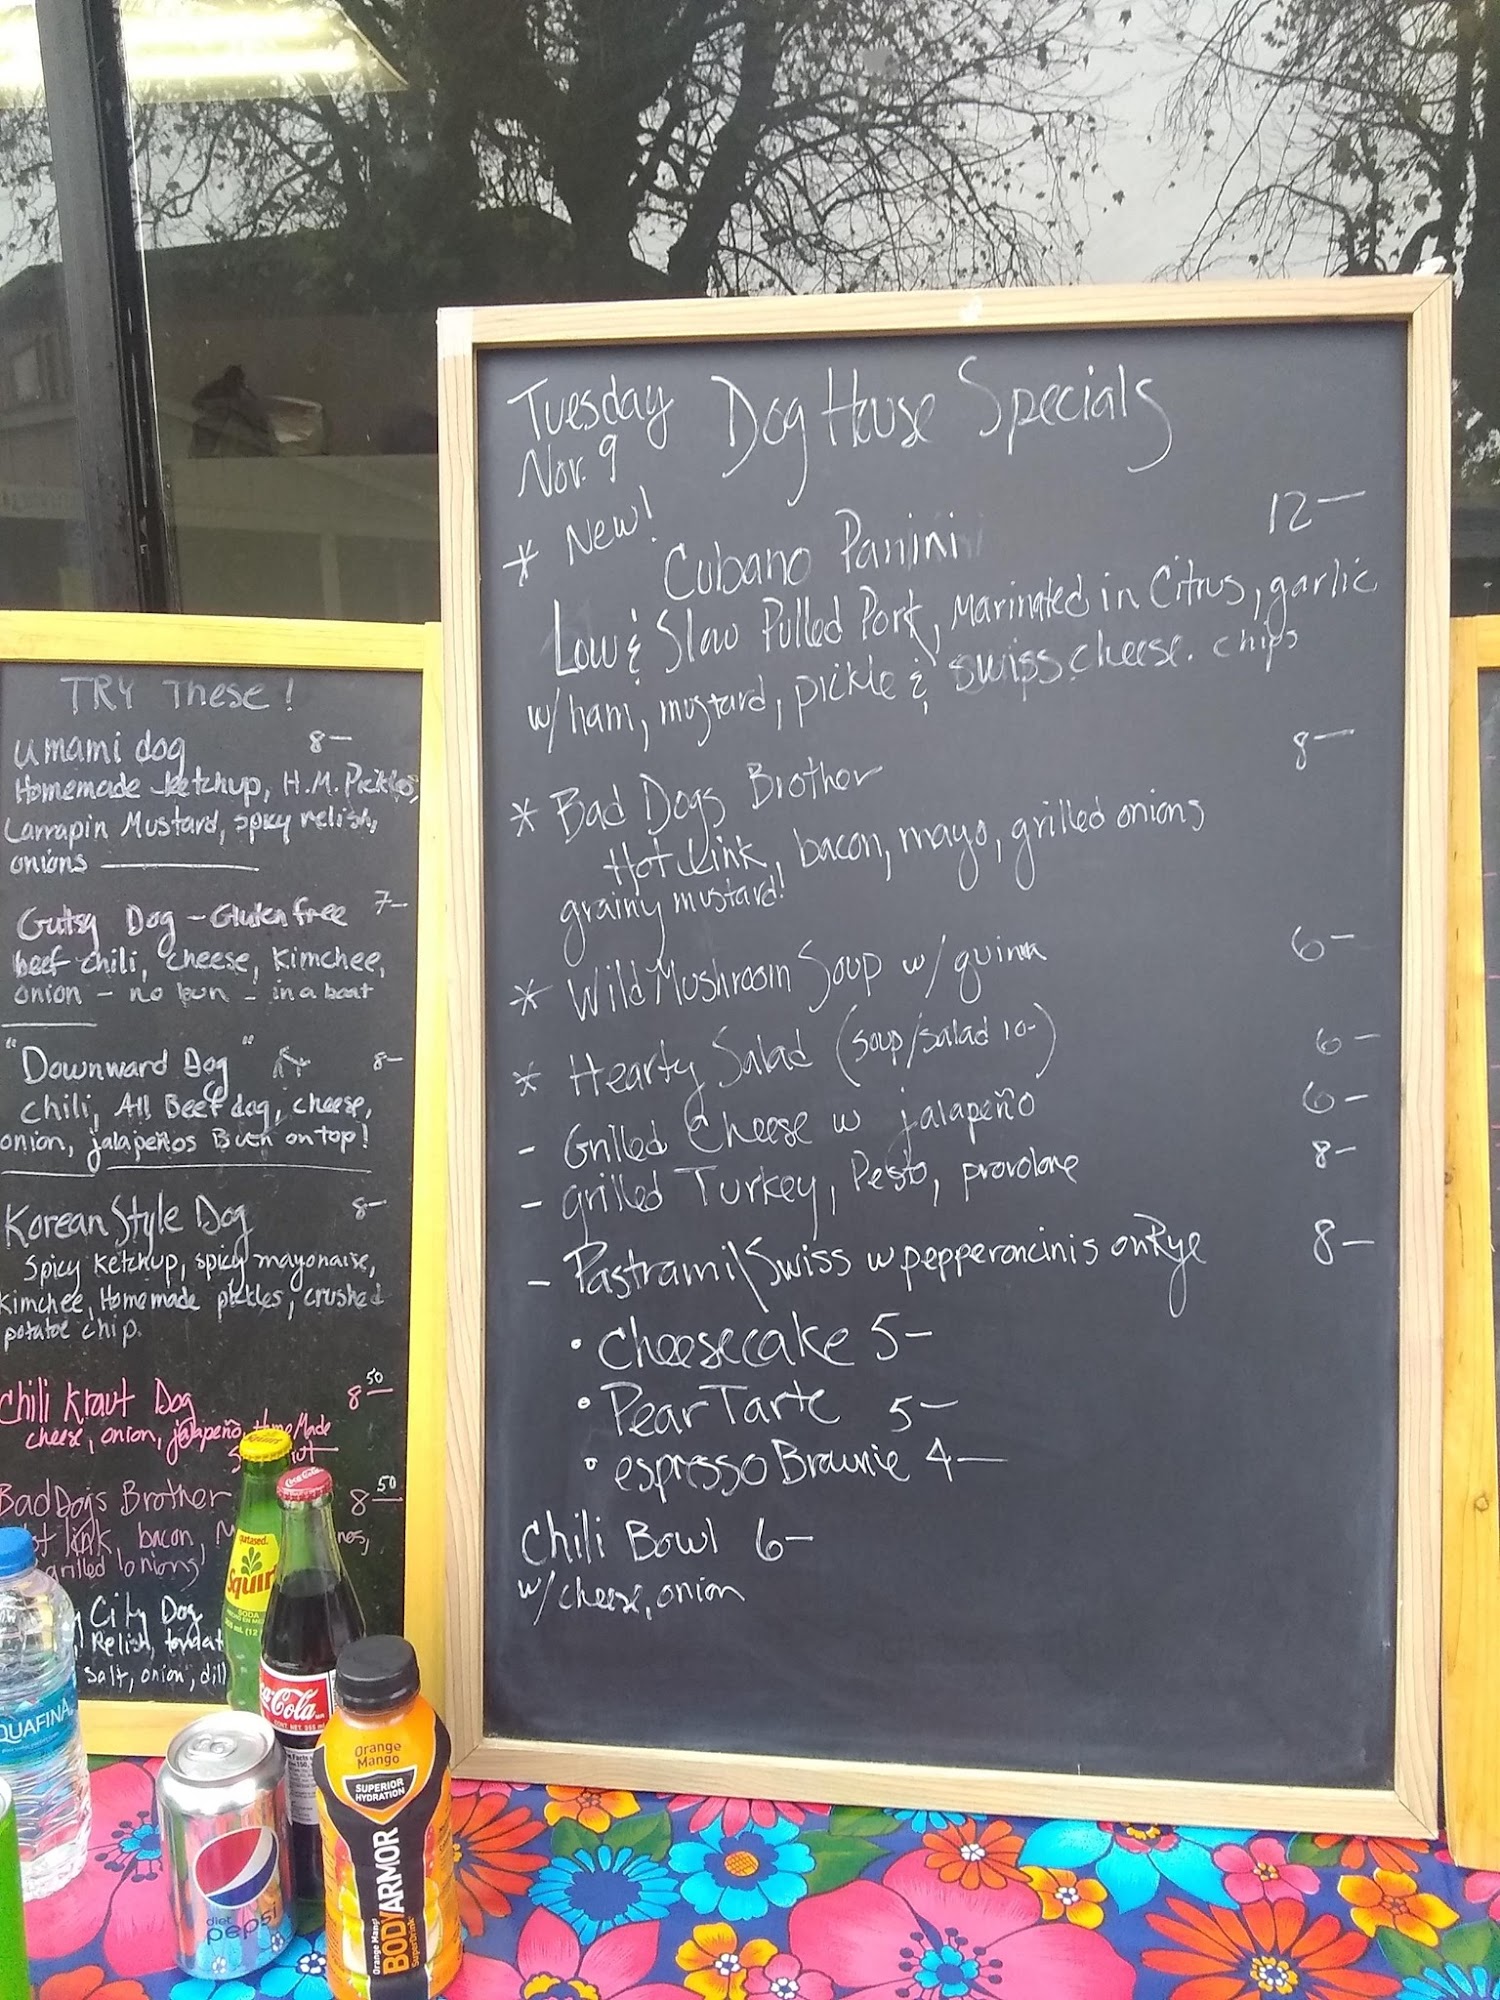 Tuesday
Nov. 9
Dog House Specials
* New!
Cubano Panini 12—
Low & Slow Pulled Pork, Marinated in Citrus, garlic
w/ham, mustard, pickle & swiss cheese. chips
* Bad Dogs Brother 8—
Hot link, bacon, mayo, grilled onions
grainy mustard!
* Wild Mushroom Soup w/ 6—
* Hearty Salad (soup/salad 10-) 6—
- Grilled Cheese w jalapeño 6—
- grilled Turkey, Pesto, provolone 8—
- Pastrami/Swiss w pepperoncinis on Rye 8—
• Cheesecake 5—
• Pear Tarte 5—
• espresso Brownie 4—
Chili Bowl 6—
w/cheese, onion
TRY These!
umami dog 8—
Homemade ketchup, H.M. Pickles,
Larrapin Mustard, spicy relish,
onions
Gutsy Dog - Gluten free 7—
beef chili, cheese, Kimchee,
onion - no bun - in a boat
"Downward Dog" 8—
chili, All Beef dog, cheese,
onion, jalapeños Bun on top!
Korean Style Dog 8—
Spicy Ketchup, spicy mayonaise,
Kimchee, Homemade pickles, crushed
potatoe chip.
Chili Kraut Dog 8 50
cheese, onion, jalapeño, Home Made
Bad Dogs Brother 8 50
link, bacon,
grilled onions!
City Dog
Relish,
salt, onion, dill
Squirt
SODA
Coca-Cola
AQUAFINA
diet
pepsi
Orange
Mango
SUPERIOR
HYDRATION
BODYARMOR
SuperDrink
Orange Mango